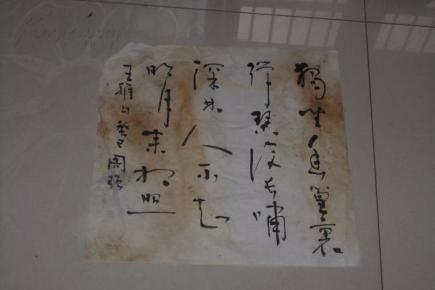 獨坐幽篁裏
彈琴復長嘯
深林人不知
明月来相照
王維句癸巳